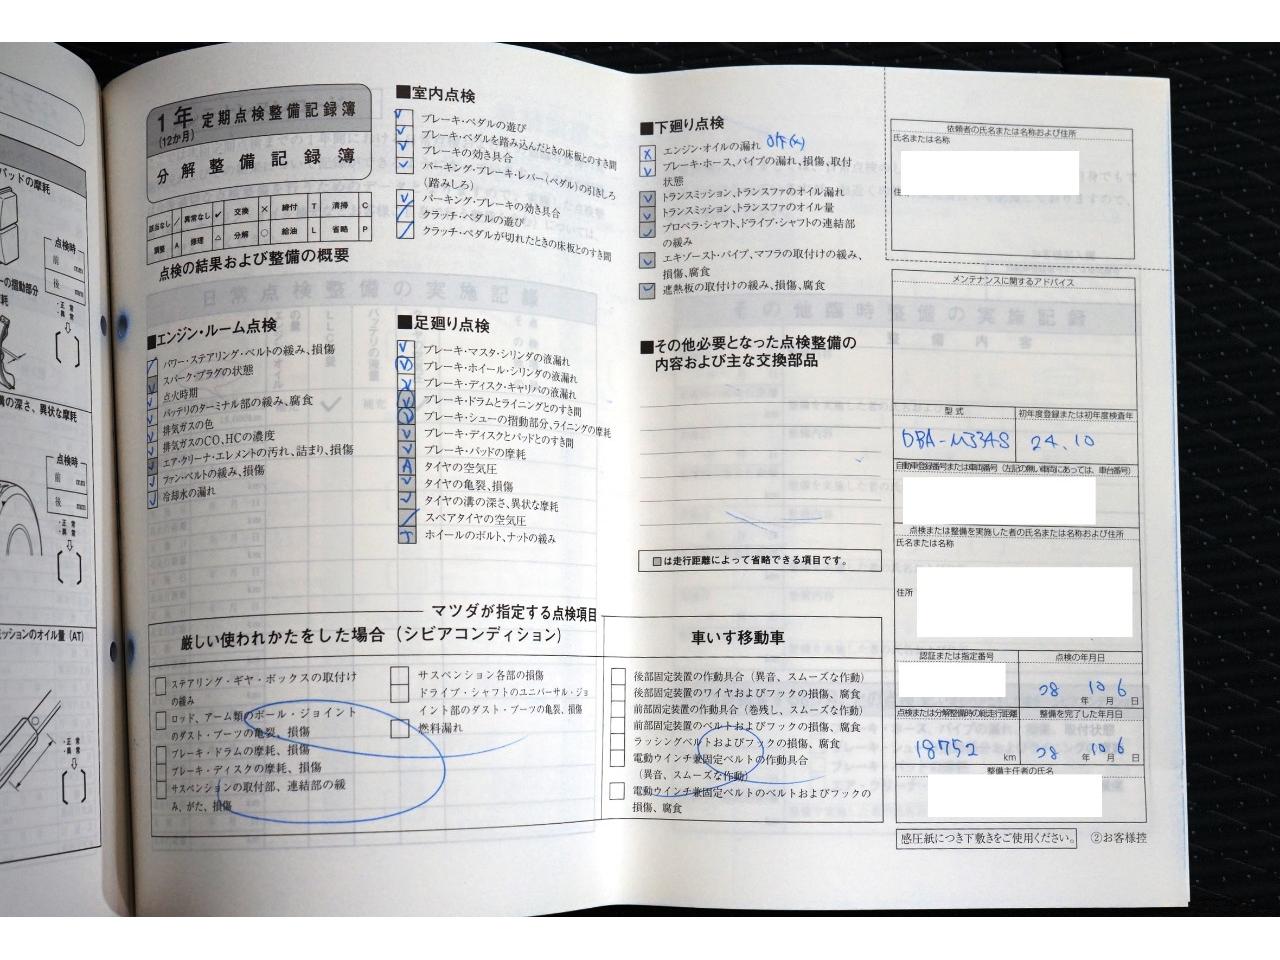 パッドの摩耗
点検時
前 mm
後 mm
ーの摺動部分
耗
・正常
・異常
溝の深さ、異状な摩耗
点検時
前 mm
後 mm
・正常
・異常
ミッションのオイル量（AT）
・正常
・異常
1年 定期点検整備記録簿
(12か月)
分解整備記録簿
該当なし ／ 異常なし ✓ 交換 × 締付 T 清掃 C
調整 A 修理 △ 分解 ○ 給油 L 省略 P
点検の結果および整備の概要
■エンジン・ルーム点検
パワー・ステアリング・ベルトの緩み、損傷
スパーク・プラグの状態
点火時期
バッテリのターミナル部の緩み、腐食
排気ガスの色
排気ガスのCO、HCの濃度
エア・クリーナ・エレメントの汚れ、詰まり、損傷
ファン・ベルトの緩み、損傷
冷却水の漏れ
■室内点検
ブレーキ・ペダルの遊び
ブレーキ・ペダルを踏み込んだときの床板とのすき間
ブレーキの効き具合
パーキング・ブレーキ・レバー（ペダル）の引きしろ
（踏みしろ）
パーキング・ブレーキの効き具合
クラッチ・ペダルの遊び
クラッチ・ペダルが切れたときの床板とのすき間
■足廻り点検
ブレーキ・マスタ・シリンダの液漏れ
ブレーキ・ホイール・シリンダの液漏れ
ブレーキ・ディスク・キャリパの液漏れ
ブレーキ・ドラムとライニングとのすき間
ブレーキ・シューの摺動部分、ライニングの摩耗
ブレーキ・ディスクとパッドとのすき間
ブレーキ・パッドの摩耗
A タイヤの空気圧
タイヤの亀裂、損傷
タイヤの溝の深さ、異状な摩耗
スペアタイヤの空気圧
T ホイールのボルト、ナットの緩み
■下廻り点検
エンジン・オイルの漏れ
ブレーキ・ホース、パイプの漏れ、損傷、取付
状態
トランスミッション、トランスファのオイル漏れ
トランスミッション、トランスファのオイル量
プロペラ・シャフト、ドライブ・シャフトの連結部
の緩み
エキゾースト・パイプ、マフラの取付けの緩み、
損傷、腐食
遮熱板の取付けの緩み、損傷、腐食
■その他必要となった点検整備の
内容および主な交換部品
□は走行距離によって省略できる項目です。
マツダが指定する点検項目
厳しい使われかたをした場合（シビアコンディション）
ステアリング・ギヤ・ボックスの取付け
の緩み
ロッド、アーム類のボール・ジョイント
のダスト・ブーツの亀裂、損傷
ブレーキ・ドラムの摩耗、損傷
ブレーキ・ディスクの摩耗、損傷
サスペンションの取付部、連結部の緩
み、がた、損傷
サスペンション各部の損傷
ドライブ・シャフトのユニバーサル・ジョ
イント部のダスト・ブーツの亀裂、損傷
燃料漏れ
車いす移動車
後部固定装置の作動具合（異音、スムーズな作動）
後部固定装置のワイヤおよびフックの損傷、腐食
前部固定装置の作動具合（巻残し、スムーズな作動）
前部固定装置のベルトおよびフックの損傷、腐食
ラッシングベルトおよびフックの損傷、腐食
電動ウインチ兼固定ベルトの作動具合
（異音、スムーズな作動）
電動ウインチ兼固定ベルトのベルトおよびフックの
損傷、腐食
依頼者の氏名または名称および住所
氏名または名称
住
メンテナンスに関するアドバイス
型式
初年度登録または初年度検査年
DBA-M334S
24.10
自動車登録番号または車両番号（左記の無い車両にあっては、車台番号）
点検または整備を実施した者の氏名または名称および住所
氏名または名称
住所
認証または指定番号
点検の年月日
28年10月6日
点検または分解整備時の総走行距離
整備を完了した年月日
18752 km
28年10月6日
整備主任者の氏名
感圧紙につき下敷きをご使用ください。
②お客様控